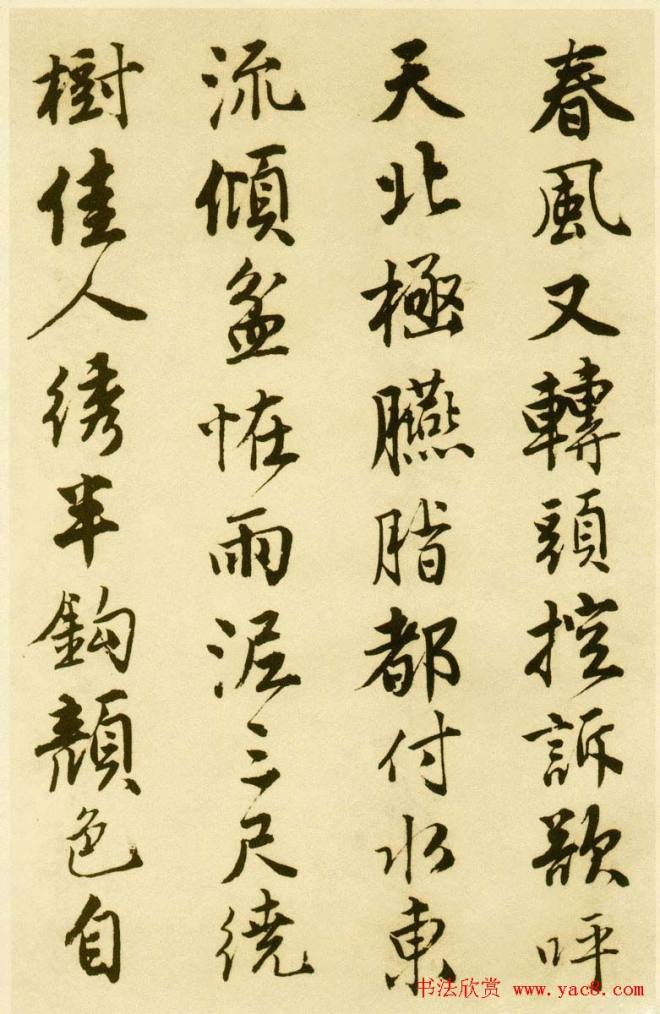 春風又轉頭控訴欲呼
天北極臙脂都付水東
流傾盆恠雨泥三尺繞
樹佳人綉半鈎顔色自
书法欣赏 www.yac8.com